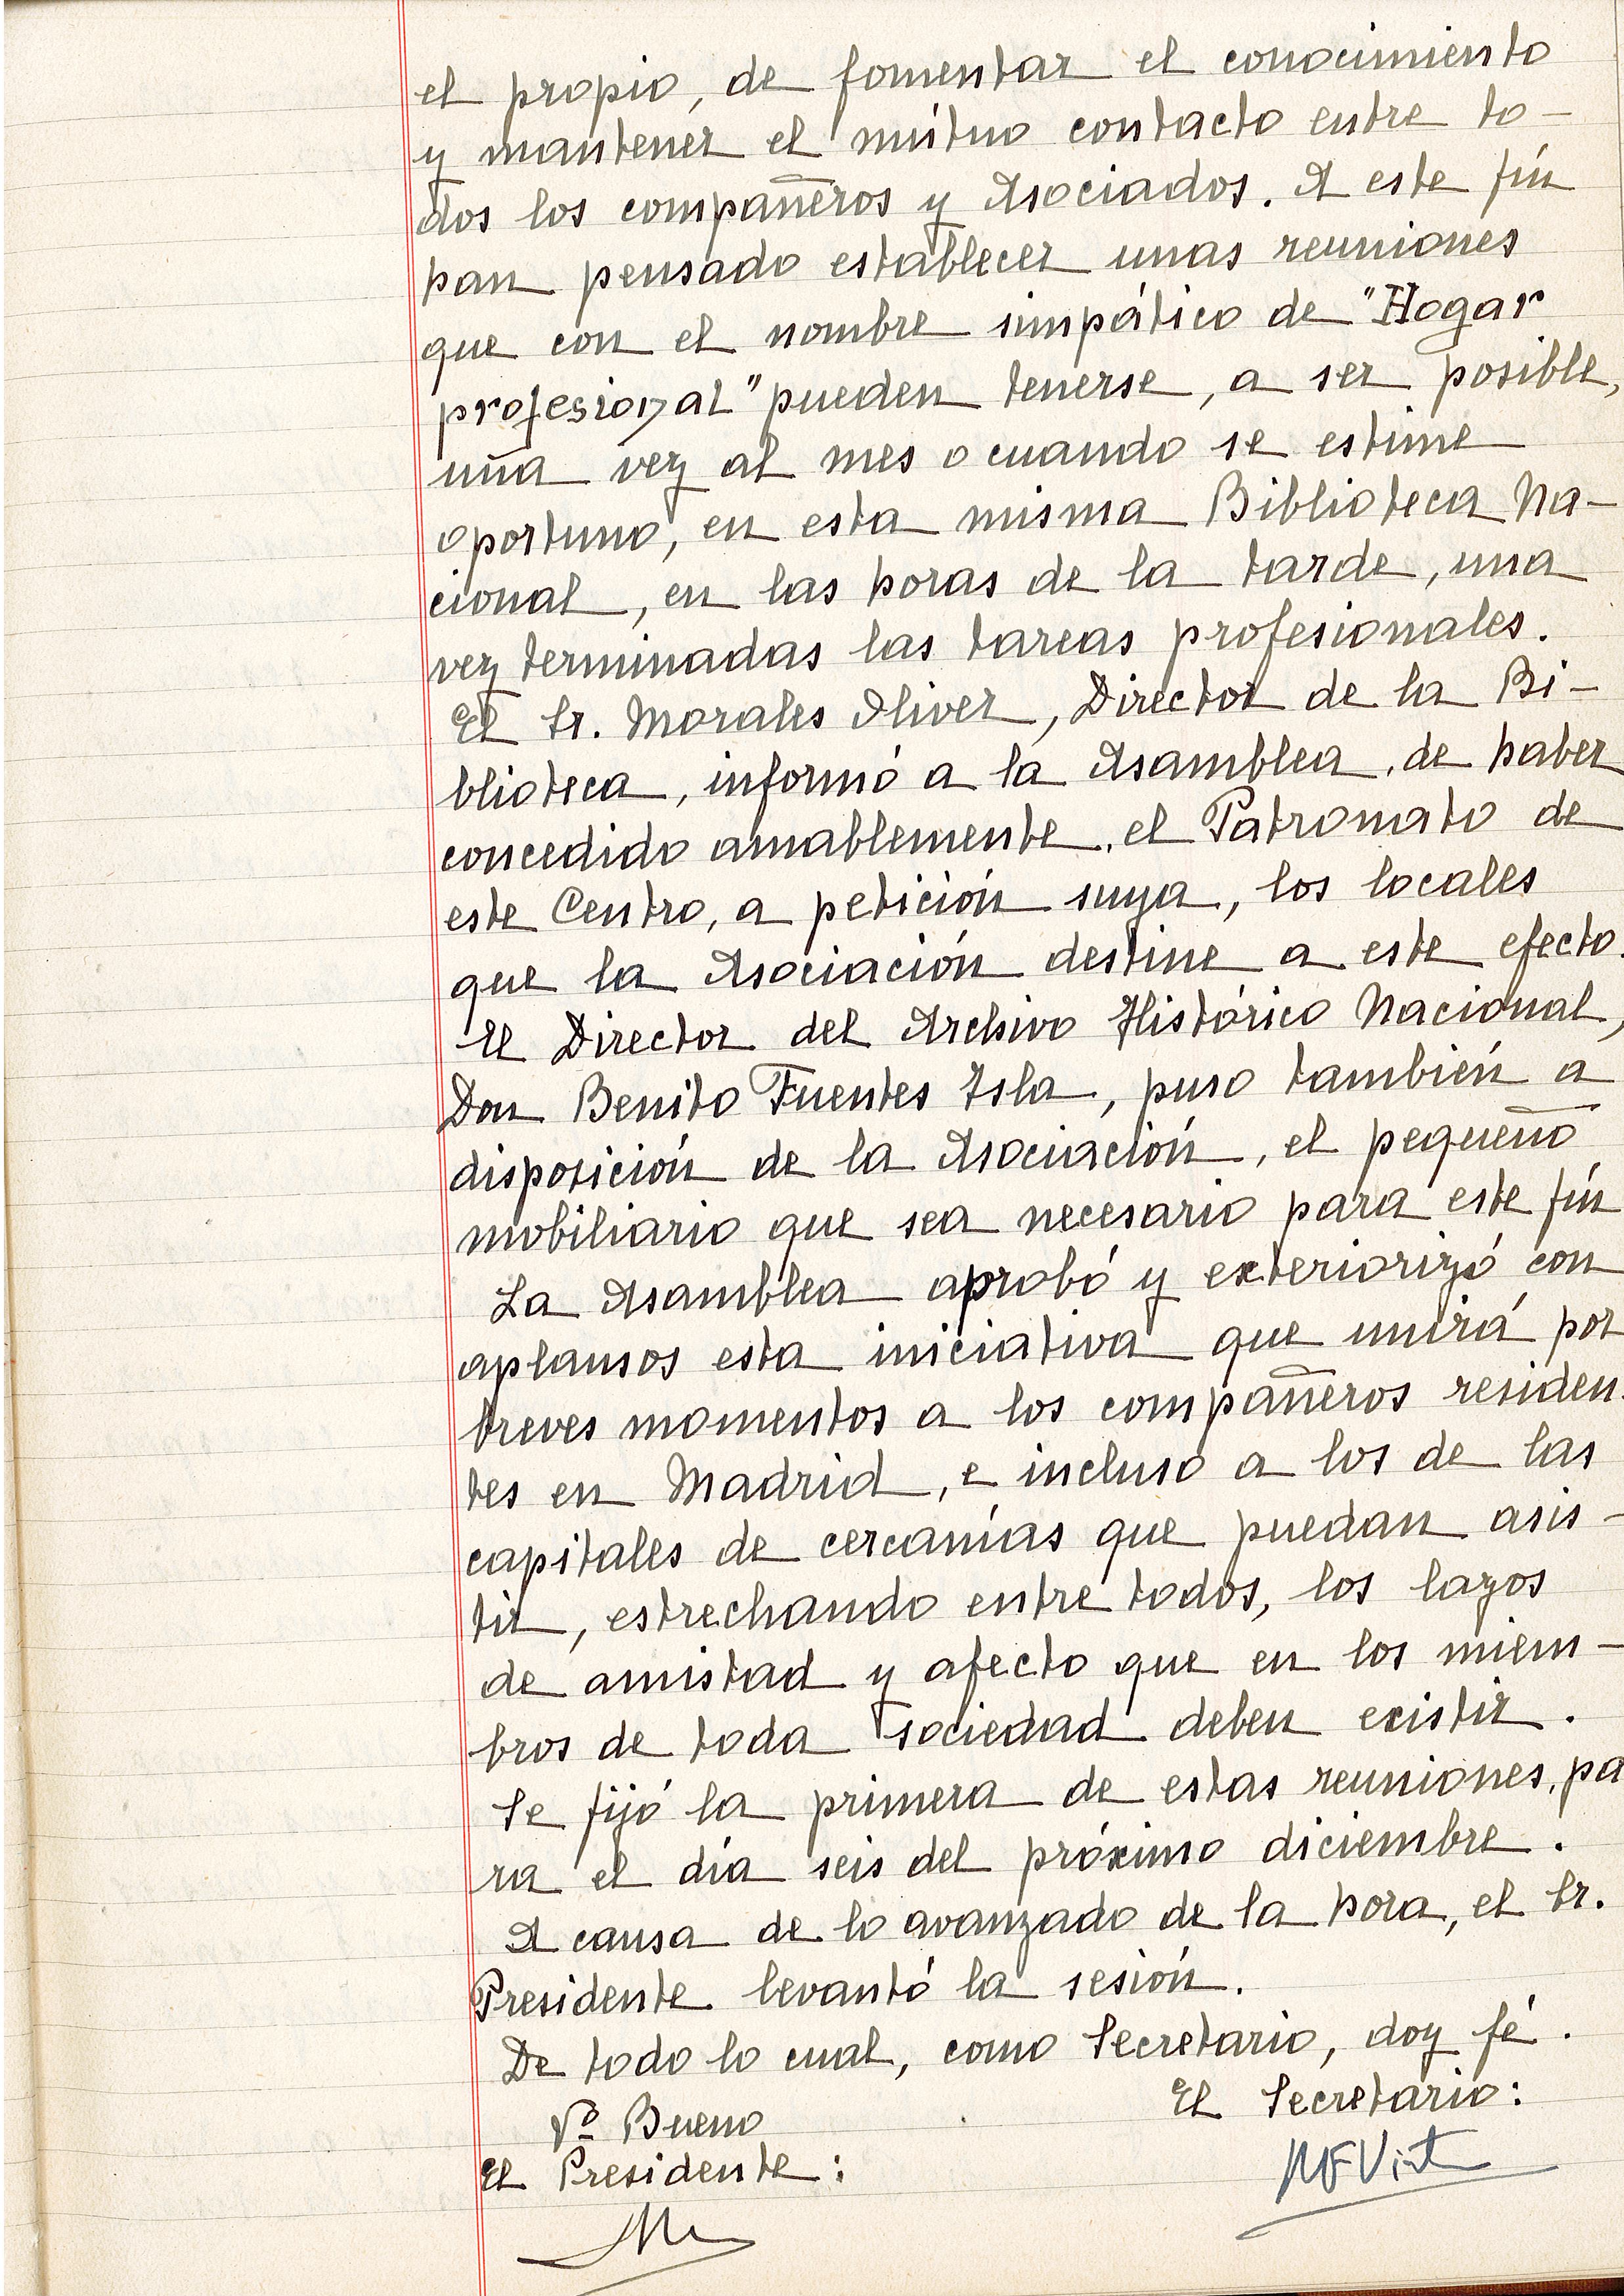 el propio, de fomentar el conocimiento
y mantener el mútuo contacto entre to-
dos los compañeros y Asociados. A este fín
han pensado establecer unas reuniones
que con el nombre simpático de "Hogar
profesional" pueden tenerse, a ser posible,
una vez al mes o cuando se estime
oportuno, en esta misma Biblioteca Na-
cional, en las horas de la tarde, una
vez terminadas las tareas profesionales.
El Sr. Morales Oliver, Director de la Bi-
blioteca, informó a la Asamblea, de haber
concedido amablemente, el Patronato de
este Centro, a petición suya, los locales
que la Asociación destine a este efecto.
El Director del Archivo Histórico Nacional,
Don Benito Fuentes Isla, puso también a
disposición de la Asociación, el pequeño
mobiliario que sea necesario para este fín
La Asamblea aprobó y exteriorizó con
aplausos esta iniciativa que unirá por
breves momentos a los compañeros residen-
tes en Madrid, e incluso a los de las
capitales de cercanías que puedan asis-
tir, estrechando entre todos, los lazos
de amistad y afecto que en los miem-
bros de toda sociedad deben existir.
Se fijó la primera de estas reuniones, pa
ra el día seis del próximo diciembre.
A causa de lo avanzado de la hora, el Sr.
Presidente levantó la sesión.
De todo lo cual, como Secretario, doy fé.
El Secretario:
Vº Bueno
El Presidente: